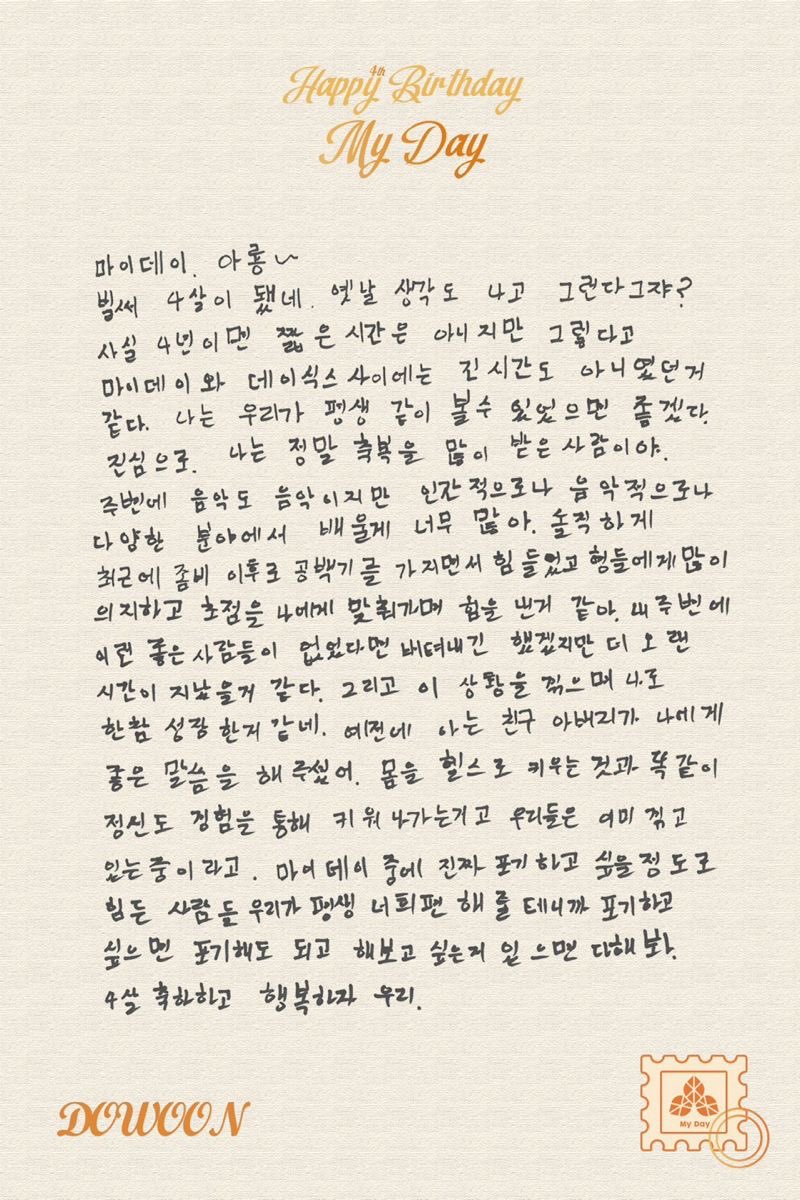 Happy 4th Birthday
My Day
마이데이. 아롱~
벌써 4살이 됐네. 옛날 생각도 나고 그런다그쟈?
사실 4년이면 짧은 시간은 아니지만 그렇다고
마이데이와 데이식스 사이에는 긴 시간도 아니였던거
같다. 나는 우리가 평생 같이 볼수 있었으면 좋겠다.
진심으로. 나는 정말 축복을 많이 받은 사람이야.
주변에 음악도 음악이지만 인간적으로나 음악적으로나
다양한 분야에서 배울게 너무 많아. 솔직하게
최근에 좀비 이후로 공백기를 가지면서 힘들었고 형들에게 많이
의지하고 초점을 나에게 맞춰가며 힘을 낸거 같아. 내 주변에
이런 좋은 사람들이 없었다면 버텨내긴 했겠지만 더 오랜
시간이 지났을거 같다. 그리고 이 상황을 겪으며 나도
한참 성장한거 같네. 예전에 아는 친구 아버지가 나에게
좋은 말씀을 해주셨어. 몸을 헬스로 키우는 것과 똑같이
정신도 경험을 통해 키워 나가는거고 우리들은 이미 겪고
있는중이라고. 마이데이 중에 진짜 포기하고 싶을정도로
힘든 사람들 우리가 평생 너희편 해줄테니까 포기하고
싶으면 포기해도 되고 해보고 싶은거 있으면 다해봐.
4살 축하하고 행복하자 우리.
DOWOON
My Day